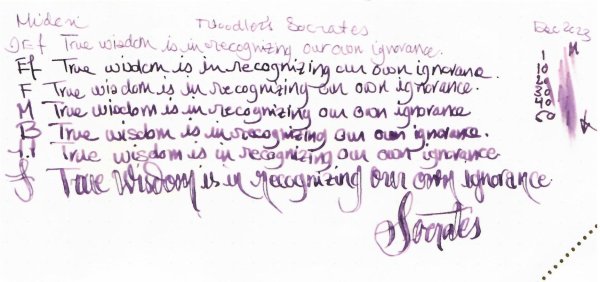 Midori Troublers Socrates Dec 2023
DEf True wisdom is in recognizing our own ignorance.
Ef True wisdom is in recognizing our own ignorance.
F True wisdom is in recognizing our own ignorance.
M True wisdom is in recognizing our own ignorance
B True wisdom is in recognizing our own ignorance.
1.1 True wisdom is in recognizing our own ignorance.
f True Wisdom is in recognizing our own ignorance.
Socrates
1
10
20
30
40
60